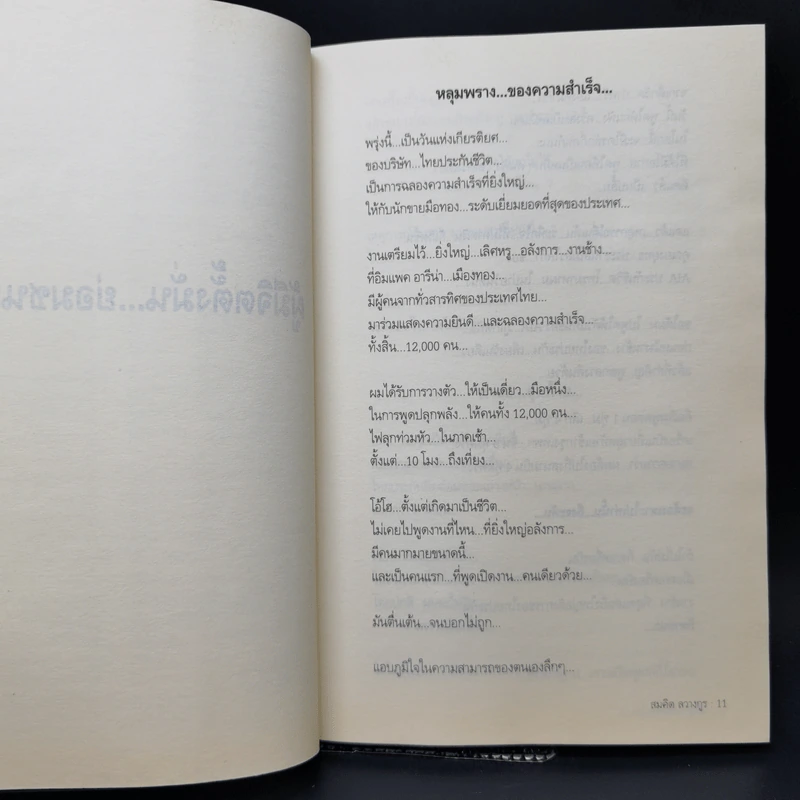 หลุมพราง...ของความสำเร็จ...
พรุ่งนี้...เป็นวันแห่งเกียรติยศ...
ของบริษัท...ไทยประกันชีวิต...
เป็นการฉลองความสำเร็จที่ยิ่งใหญ่...
ให้กับนักขายมือทอง...ระดับเยี่ยมยอดที่สุดของประเทศ...
งานเตรียมไว้...ยิ่งใหญ่...เลิศหรู...อลังการ...งานช้าง...
ที่อิมแพค อารีน่า...เมืองทอง...
มีผู้คนจากทั่วสารทิศของประเทศไทย...
มาร่วมแสดงความยินดี...และฉลองความสำเร็จ...
ทั้งสิ้น...12,000 คน...
ผมได้รับการวางตัว...ให้เป็นเดี่ยว...มือหนึ่ง...
ในการพูดปลุกพลัง...ให้คนทั้ง 12,000 คน...
ไฟลุกท่วมหัว...ในภาคเช้า...
ตั้งแต่...10 โมง...ถึงเที่ยง...
โอ้โฮ...ตั้งแต่เกิดมาเป็นชีวิต...
ไม่เคยไปพูดงานที่ไหน...ที่ยิ่งใหญ่อลังการ...
มีคนมากมายขนาดนี้...
และเป็นคนแรก...ที่พูดเปิดงาน...คนเดียวด้วย...
มันตื่นเต้น...จนบอกไม่ถูก...
แอบภูมิใจในความสามารถของตนเองลึกๆ...
สมคิด ลวางกูร 11